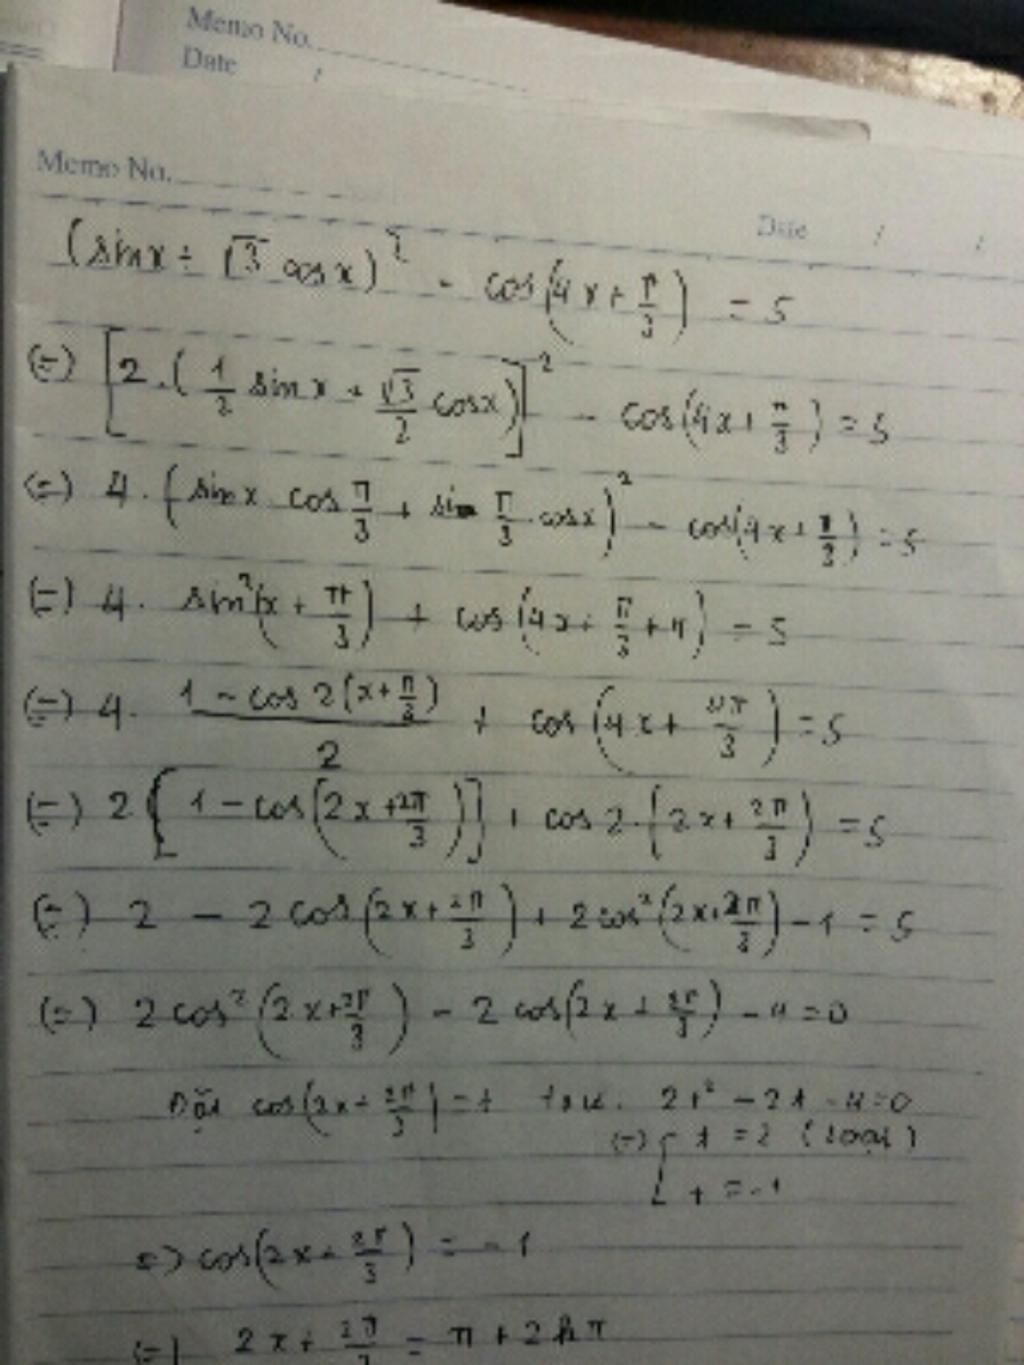 Memo No.
Date /
Memo No.
Date / /
(sinx + √3 cosx)² - cos(4x + π/3) = 5
(=) [2.(1/2 sinx + √3/2 cosx)]² - cos(4x + π/3) = 5
(=) 4.(sinx cos π/3 + sin π/3 cosx)² - cos(4x + π/3) = 5
(=) 4. sin²(x + π/3) + cos(4x + π/3 + π) = 5
(=) 4. (1 - cos 2(x + π/3))/2 + cos(4x + 4π/3) = 5
(=) 2[1 - cos(2x + 2π/3)] + cos 2.(2x + 2π/3) = 5
(=) 2 - 2cos(2x + 2π/3) + 2cos²(2x + 2π/3) - 1 = 5
(=) 2cos²(2x + 2π/3) - 2cos(2x + 2π/3) - 4 = 0
Đặt cos(2x + 2π/3) = t 2t² - 2t - 4 = 0
(=) [ t = 2 (loại)
t = -1
=) cos(2x + 2π/3) = -1
(=) 2x + 2π/3 = π + 2kπ